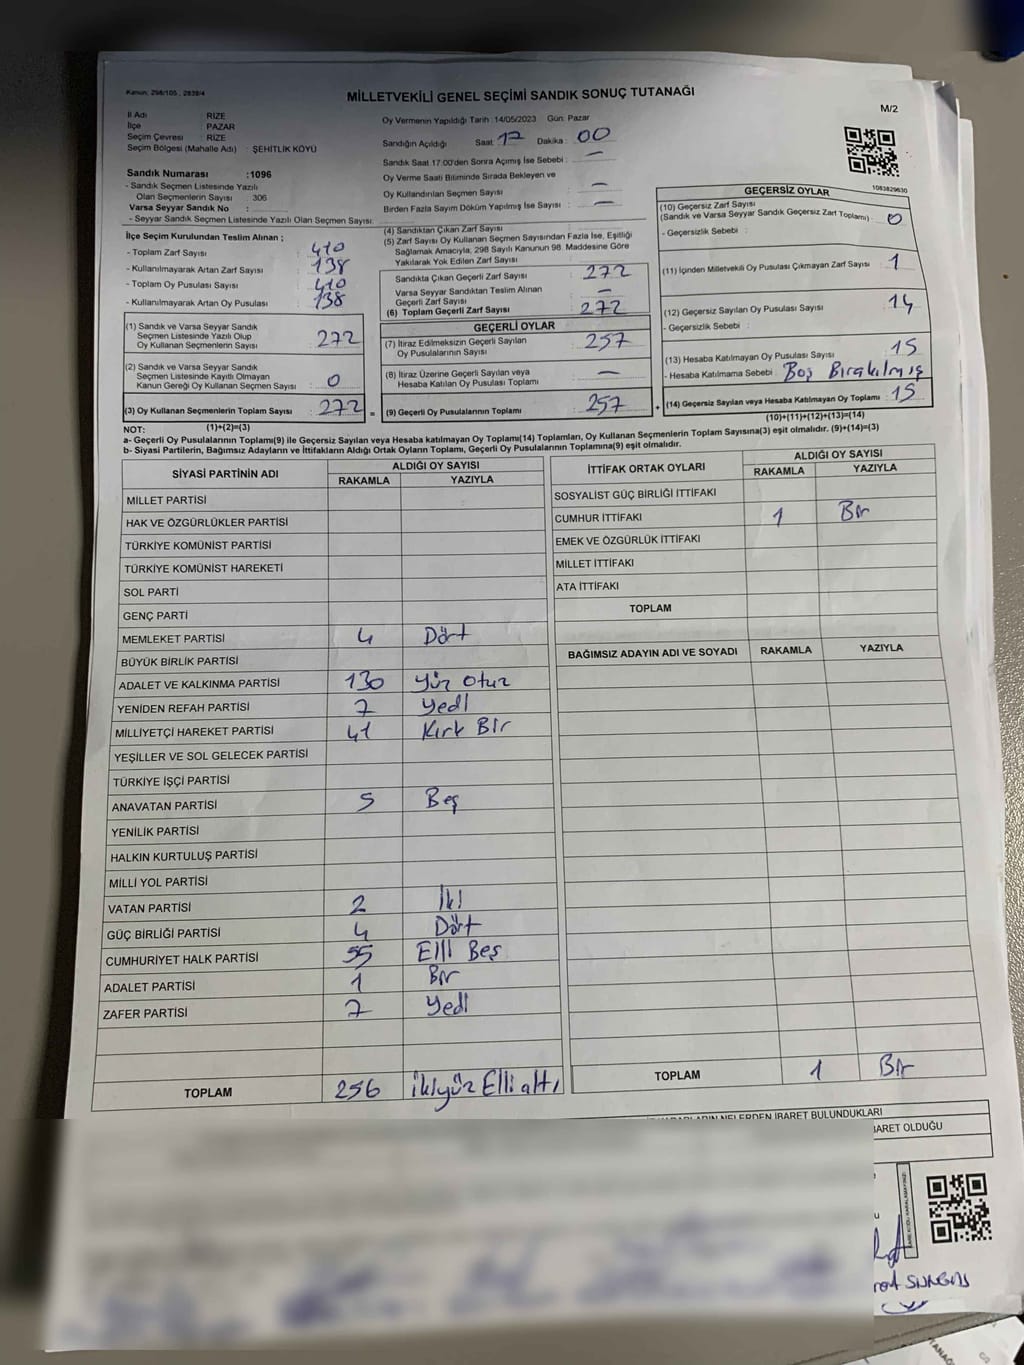 Kanun: 298/105 , 2839/4
MİLLETVEKİLİ GENEL SEÇİMİ SANDIK SONUÇ TUTANAĞI
M/2
İl Adı : RİZE
İlçe : PAZAR
Seçim Çevresi : RİZE
Seçim Bölgesi (Mahalle Adı) : ŞEHİTLİK KÖYÜ
Sandık Numarası :1096
- Sandık Seçmen Listesinde Yazılı
Olan Seçmenlerin Sayısı : 306
Varsa Seyyar Sandık No :
- Seyyar Sandık Seçmen Listesinde Yazılı Olan Seçmen Sayısı:
İlçe Seçim Kurulundan Teslim Alınan ;
- Toplam Zarf Sayısı : 410
- Kullanılmayarak Artan Zarf Sayısı : 138
- Toplam Oy Pusulası Sayısı : 410
- Kullanılmayarak Artan Oy Pusulası : 138
(1) Sandık ve Varsa Seyyar Sandık
Seçmen Listesinde Yazılı Olup
Oy Kullanan Seçmenlerin Sayısı : 272
(2) Sandık ve Varsa Seyyar Sandık
Seçmen Listesinde Kayıtlı Olmayan
Kanun Gereği Oy Kullanan Seçmen Sayısı : 0
(3) Oy Kullanan Seçmenlerin Toplam Sayısı : 272 =
(1)+(2)=(3)
Oy Vermenin Yapıldığı Tarih :14/05/2023 Gün: Pazar
Sandığın Açıldığı Saat: 17 Dakika : 00
Sandık Saat 17.00'den Sonra Açılmış İse Sebebi : —
Oy Verme Saati Bitiminde Sırada Bekleyen ve
Oy Kullandırılan Seçmen Sayısı : —
Birden Fazla Sayım Döküm Yapılmış İse Sayısı : —
(4) Sandıktan Çıkan Zarf Sayısı :
(5) Zarf Sayısı Oy Kullanan Seçmen Sayısından Fazla İse, Eşitliği
Sağlamak Amacıyla, 298 Sayılı Kanunun 98. Maddesine Göre
Yakılarak Yok Edilen Zarf Sayısı :
Sandıkta Çıkan Geçerli Zarf Sayısı : 272
Varsa Seyyar Sandıktan Teslim Alınan
Geçerli Zarf Sayısı : —
(6) Toplam Geçerli Zarf Sayısı : 272
GEÇERLİ OYLAR
(7) İtiraz Edilmeksizin Geçerli Sayılan
Oy Pusulalarının Sayısı : 257
(8) İtiraz Üzerine Geçerli Sayılan veya
Hesaba Katılan Oy Pusulası Toplamı : —
(9) Geçerli Oy Pusulalarının Toplamı : 257 +
1083829630
GEÇERSİZ OYLAR
(10) Geçersiz Zarf Sayısı
(Sandık ve Varsa Seyyar Sandık Geçersiz Zarf Toplamı) : 0
- Geçersizlik Sebebi :
(11) İçinden Milletvekili Oy Pusulası Çıkmayan Zarf Sayısı : 1
(12) Geçersiz Sayılan Oy Pusulası Sayısı : 14
- Geçersizlik Sebebi :
(13) Hesaba Katılmayan Oy Pusulası Sayısı : 15
- Hesaba Katılmama Sebebi : Boş Bırakılmış
(14) Geçersiz Sayılan veya Hesaba Katılmayan Oy Toplamı : 15
(10)+(11)+(12)+(13)=(14)
NOT:
a- Geçerli Oy Pusulalarının Toplamı(9) ile Geçersiz Sayılan veya Hesaba katılmayan Oy Toplamı(14) Toplamları, Oy Kullanan Seçmenlerin Toplam Sayısına(3) eşit olmalıdır. (9)+(14)=(3)
b- Siyasi Partilerin, Bağımsız Adayların ve İttifakların Aldığı Ortak Oyların Toplamı, Geçerli Oy Pusulalarının Toplamına(9) eşit olmalıdır.
SİYASİ PARTİNİN ADI ALDIĞI OY SAYISI
RAKAMLA YAZIYLA
MİLLET PARTİSİ
HAK VE ÖZGÜRLÜKLER PARTİSİ
TÜRKİYE KOMÜNİST PARTİSİ
TÜRKİYE KOMÜNİST HAREKETİ
SOL PARTİ
GENÇ PARTİ
MEMLEKET PARTİSİ 4 Dört
BÜYÜK BİRLİK PARTİSİ
ADALET VE KALKINMA PARTİSİ 130 Yüz Otuz
YENİDEN REFAH PARTİSİ 7 Yedİ
MİLLİYETÇİ HAREKET PARTİSİ 41 Kırk Bİr
YEŞİLLER VE SOL GELECEK PARTİSİ
TÜRKİYE İŞÇİ PARTİSİ
ANAVATAN PARTİSİ 5 Beş
YENİLİK PARTİSİ
HALKIN KURTULUŞ PARTİSİ
MİLLİ YOL PARTİSİ
VATAN PARTİSİ 2 İkİ
GÜÇ BİRLİĞİ PARTİSİ 4 Dört
CUMHURİYET HALK PARTİSİ 55 Ellİ Beş
ADALET PARTİSİ 1 Bir
ZAFER PARTİSİ 7 Yedİ
TOPLAM 256 İkiyüz Elli altı
İTTİFAK ORTAK OYLARI ALDIĞI OY SAYISI
RAKAMLA YAZIYLA
SOSYALİST GÜÇ BİRLİĞİ İTTİFAKI
CUMHUR İTTİFAKI 1 Bir
EMEK VE ÖZGÜRLÜK İTTİFAKI
MİLLET İTTİFAKI
ATA İTTİFAKI
TOPLAM
BAĞIMSIZ ADAYIN ADI VE SOYADI RAKAMLA YAZIYLA
TOPLAM 1 Bir
NELERDEN İBARET BULUNDUKLARI
BARET OLDUĞU